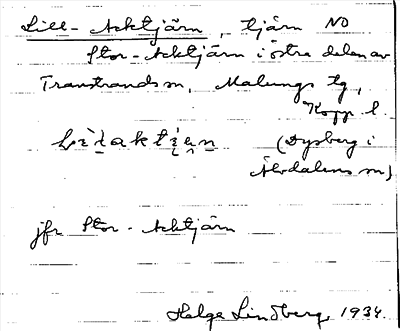 Lill-Acktjärn, tjärn NO
Stor-Acktjärn i östra delen av
Transtrands sn, Malungs tg,
Kopp. l.
(Dysberg i
Älvdalens sn)
jfr Stor-Acktjärn
Helge Lindberg, 1934.